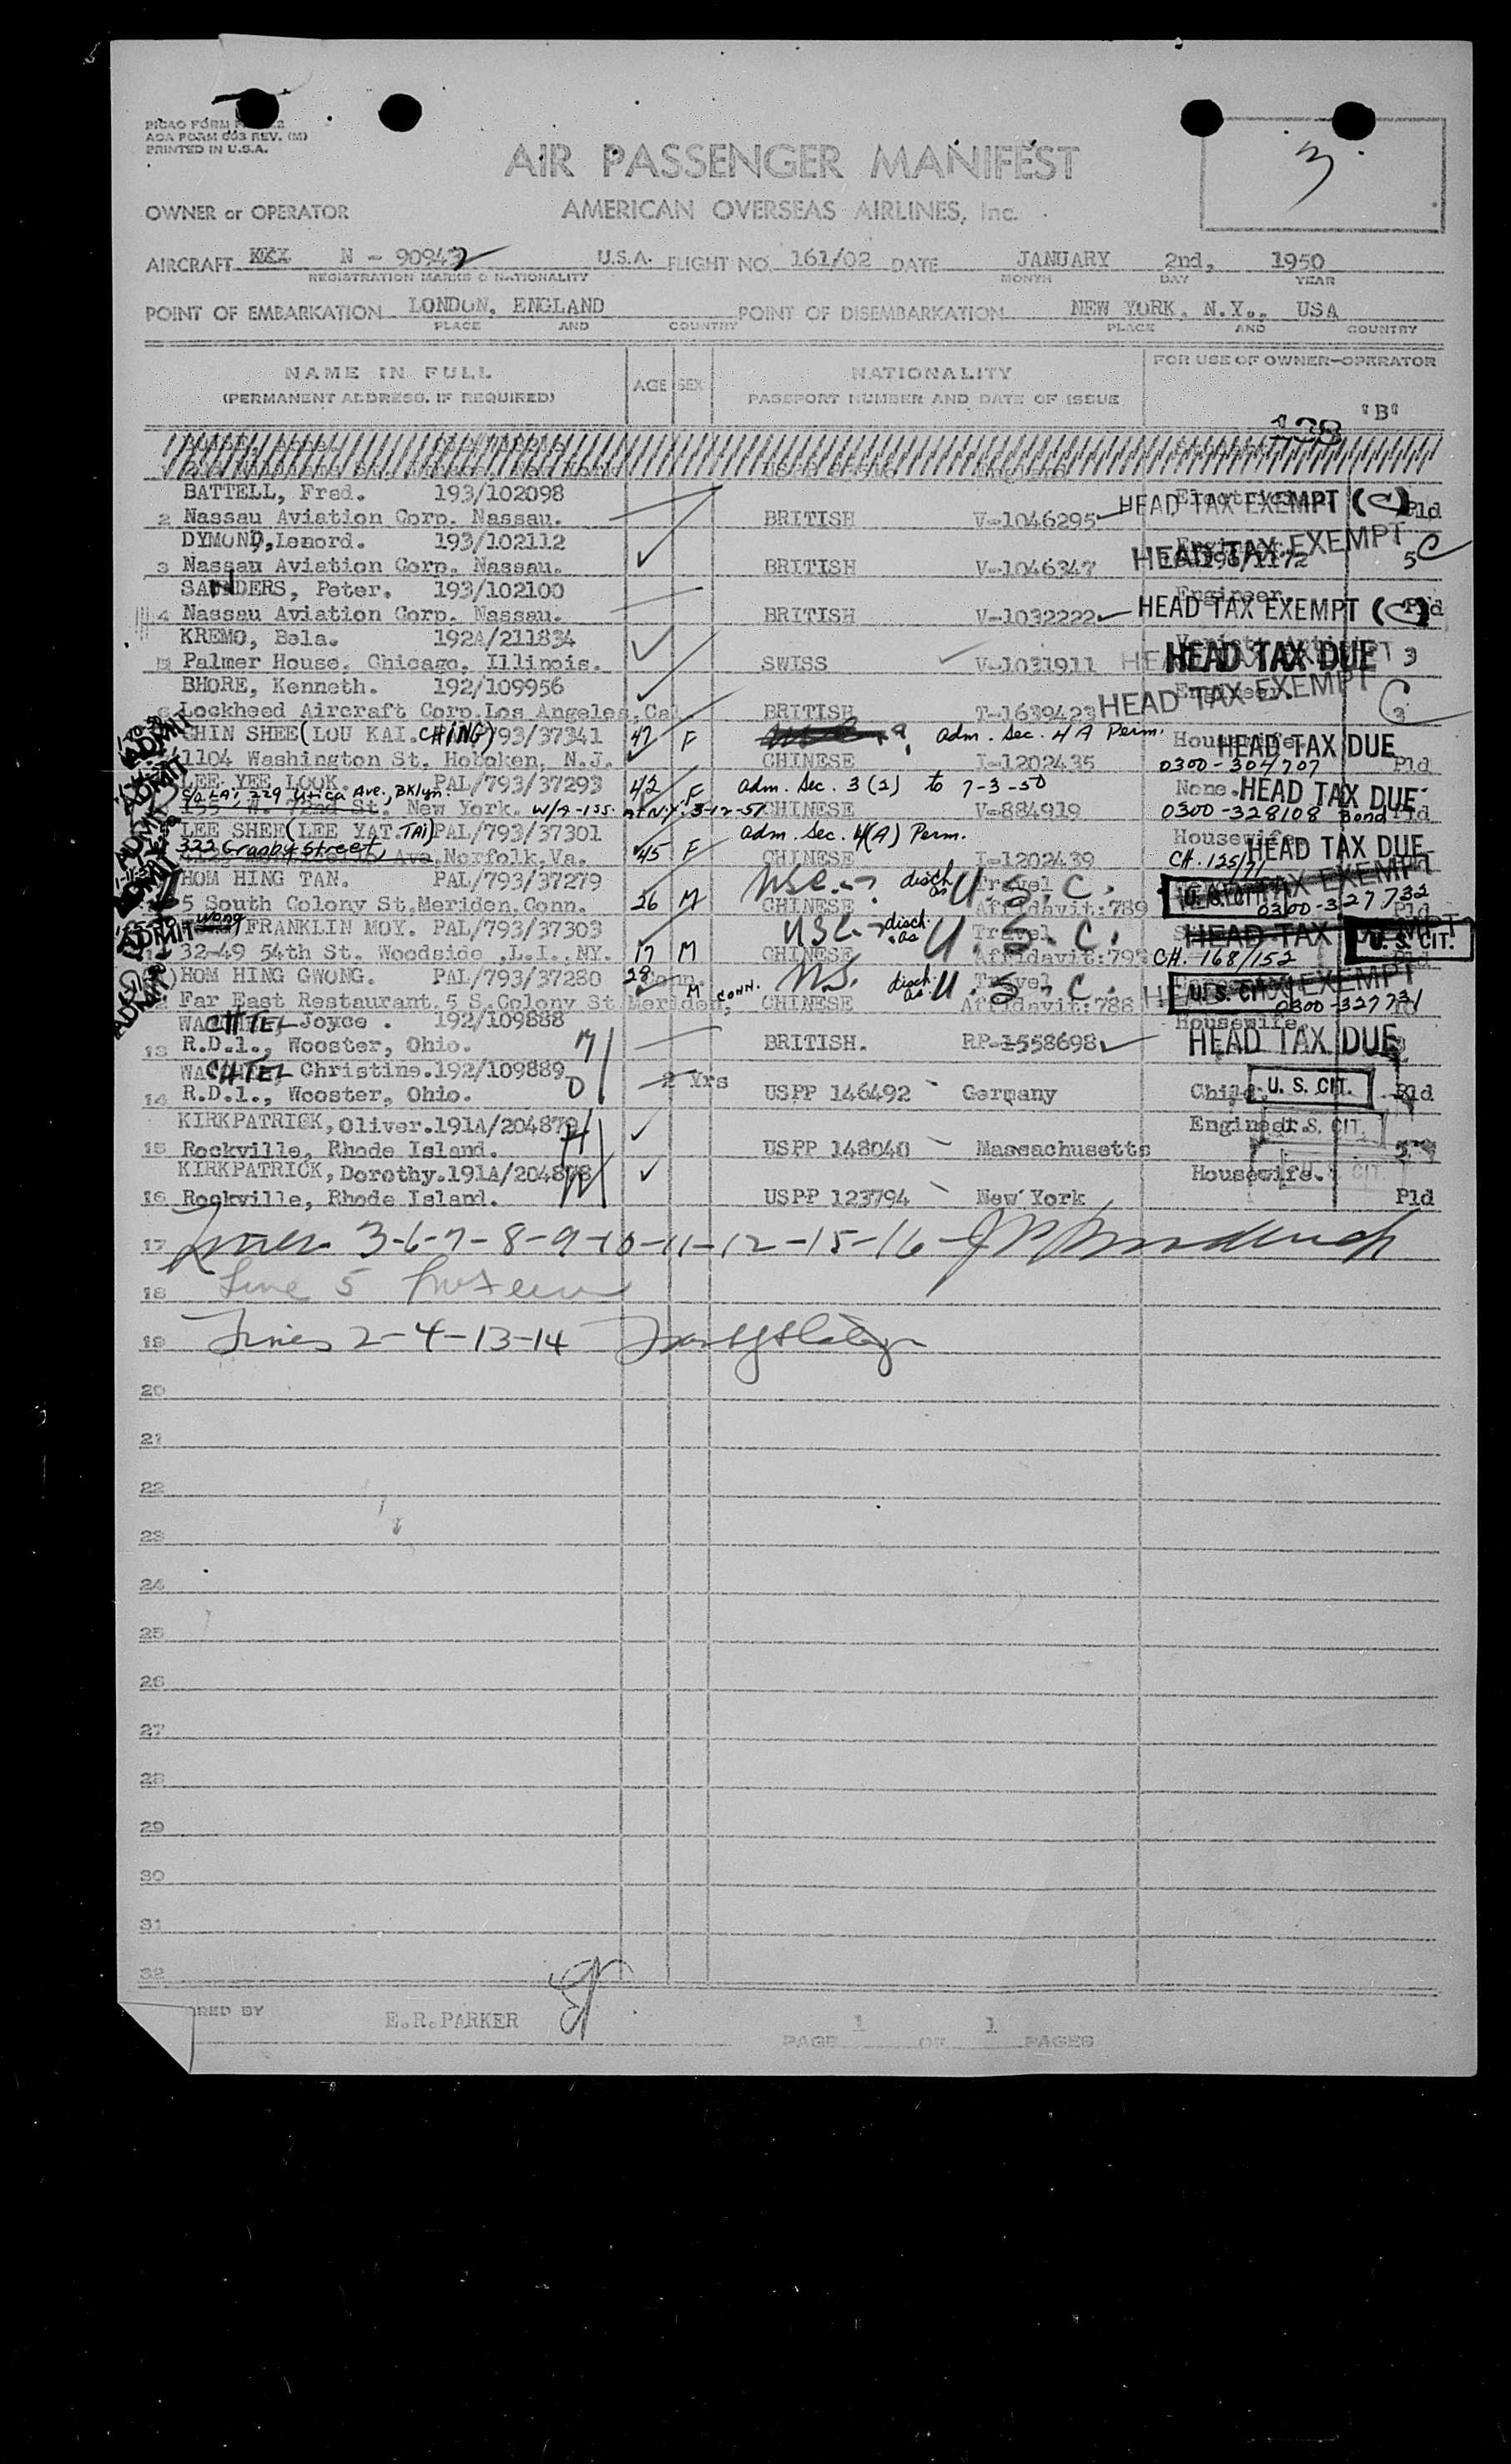 PICAO FORM
AOA FORM 603 REV. (M)
PRINTED IN U.S.A.
3
AIR PASSENGER MANIFEST
OWNER or OPERATOR AMERICAN OVERSEAS AIRLINES, Inc.
AIRCRAFT XXX N - 90942 U.S.A. FLIGHT NO. 161/02 DATE JANUARY 2nd, 1950
REGISTRATION MARKS & NATIONALITY MONTH DAY YEAR
POINT OF EMBARKATION LONDON, ENGLAND POINT OF DISEMBARKATION NEW YORK, N.Y., USA
PLACE AND COUNTRY PLACE AND COUNTRY
NAME IN FULL AGE SEX NATIONALITY FOR USE OF OWNER-OPERATOR
(PERMANENT ADDRESS, IF REQUIRED) PASSPORT NUMBER AND DATE OF ISSUE
138 "B"
BATTELL, Fred. 193/102098
2 Nassau Aviation Corp. Nassau. BRITISH V-1046295 HEAD TAX EXEMPT (C) Pld
DYMOND, Lenord. 193/102112
3 Nassau Aviation Corp. Nassau. BRITISH V-1046347 HEAD TAX EXEMPT 5 C
SAUNDERS, Peter. 193/102100 Engineer.
4 Nassau Aviation Corp. Nassau. BRITISH V-1032222 HEAD TAX EXEMPT (C) Pld
KREMO, Bela. 192A/211834
5 Palmer House, Chicago, Illinois. SWISS V-1031911 HEAD TAX DUE 3
BHORE, Kenneth. 192/109956 Engineer
6 Lockheed Aircraft Corp. Los Angeles, Cal. BRITISH T-1639423 HEAD TAX EXEMPT C 3
ADMIT CHIN SHEE (LOU KAI. CHING) 793/37341 47 F adm. Sec. 4 A Perm. Housewife HEAD TAX DUE
1104 Washington St. Hoboken, N.J. CHINESE I-1202435 0300-304707 Pld
ADMIT LEE YEE LOOK. PAL/793/37293 42 F adm. Sec. 3 (2) to 7-3-50 None. HEAD TAX DUE
229 Utica Ave., Bklyn.
155 W. 72nd St. New York. W/A-iss. at N.Y. 3-12-51 CHINESE V-884919 0300-328108 Bond Pld
ADMIT LEE SHEE (LEE YAT. TAI) PAL/793/37301 45 F adm. Sec. 4(A) Perm. Housewife HEAD TAX DUE
322 Granby Street, Ave. Norfolk, Va. CHINESE I-1202439 CH. 125/71
ADMIT HOM HING TAN. PAL/793/37279 26 M disch as U.S.C. Travel HEAD TAX EXEMPT
5 South Colony St. Meriden, Conn. CHINESE Affidavit: 789 U. S. CIT. 0300-327732 Pld
ADMIT Wong FRANKLIN MOY. PAL/793/37303 17 M disch. as U.S.C. Travel HEAD TAX U. S. CIT.
32-49 54th St. Woodside, L.I., NY. CHINESE Affidavit: 795 CH. 168/152
ADMIT HOM HING GWONG. PAL/793/37280 28 M disch. as U.S.C. Travel EXEMPT
Far East Restaurant, 5 S. Colony St Meriden, CONN. CHINESE Affidavit: 788 U. S. CIT. 0300-327731
WACHTEL Joyce. 192/109888 Housewife.
13 R.D.1., Wooster, Ohio. BRITISH. RP-1558698 HEAD TAX DUE
WACHTEL, Christine. 192/109889 2 Yrs
14 R.D.1., Wooster, Ohio. USPP 146492 Germany Child. U. S. CIT. Pld
KIRKPATRICK, Oliver. 191A/204879 Engineer. U. S. CIT.
15 Rockville, Rhode Island. USPP 148040 Massachusetts 5
KIRKPATRICK, Dorothy. 191A/204878 Housewife. U. S. CIT.
16 Rockville, Rhode Island. USPP 123794 New York Pld
17 Lines 3-6-7-8-9-10-11-12-15-16
18 Line 5
19 Lines 2-4-13-14
20
21
22
23
24
25
26
27
28
29
30
31
32
RED BY E.R. PARKER
PAGE 1 OF 1 PAGES